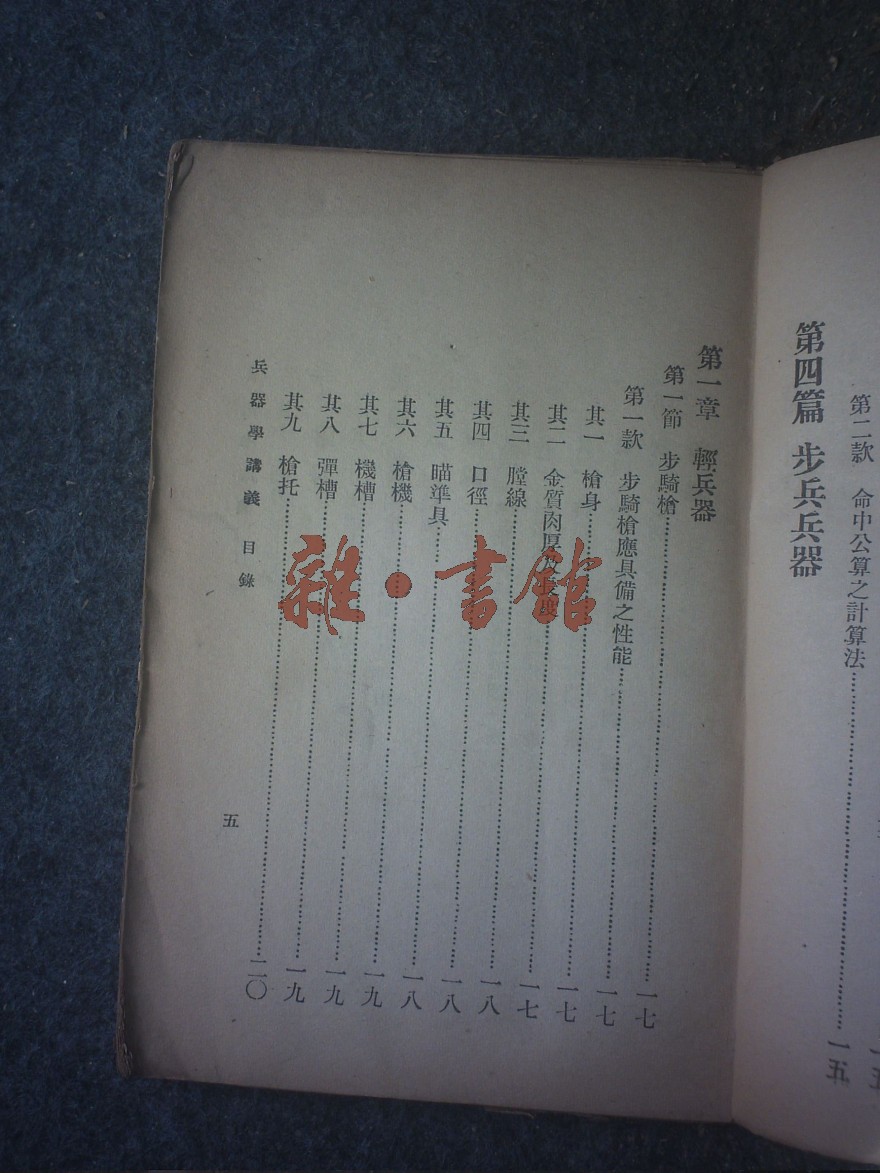 第二款 命中公算之計算法……一五
第四篇 步兵兵器
第一章 輕兵器
第一節 步騎槍……一七
第一款 步騎槍應具備之性能……一七
其一 槍身……一七
其二 金質肉厚及長度……一七
其三 膛線……一八
其四 口徑……一八
其五 瞄準具……一八
其六 槍機……一九
其七 機槽……一九
其八 彈槽……一九
其九 槍托……二〇
兵器學講義 目錄
五
雜·書館